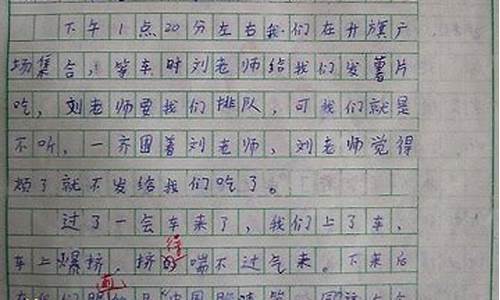 下午1点20分左右我们在升旗广
场集合,等车时刘老师给我们发薯片
吃,刘老师要我们排队,可我们就是
不听,一齐围着刘老师,刘老师觉得
烦了就不发给我们吃了。
过了一会车来了,我们上了车,
车上爆挤,挤得喘不过气来。下来后